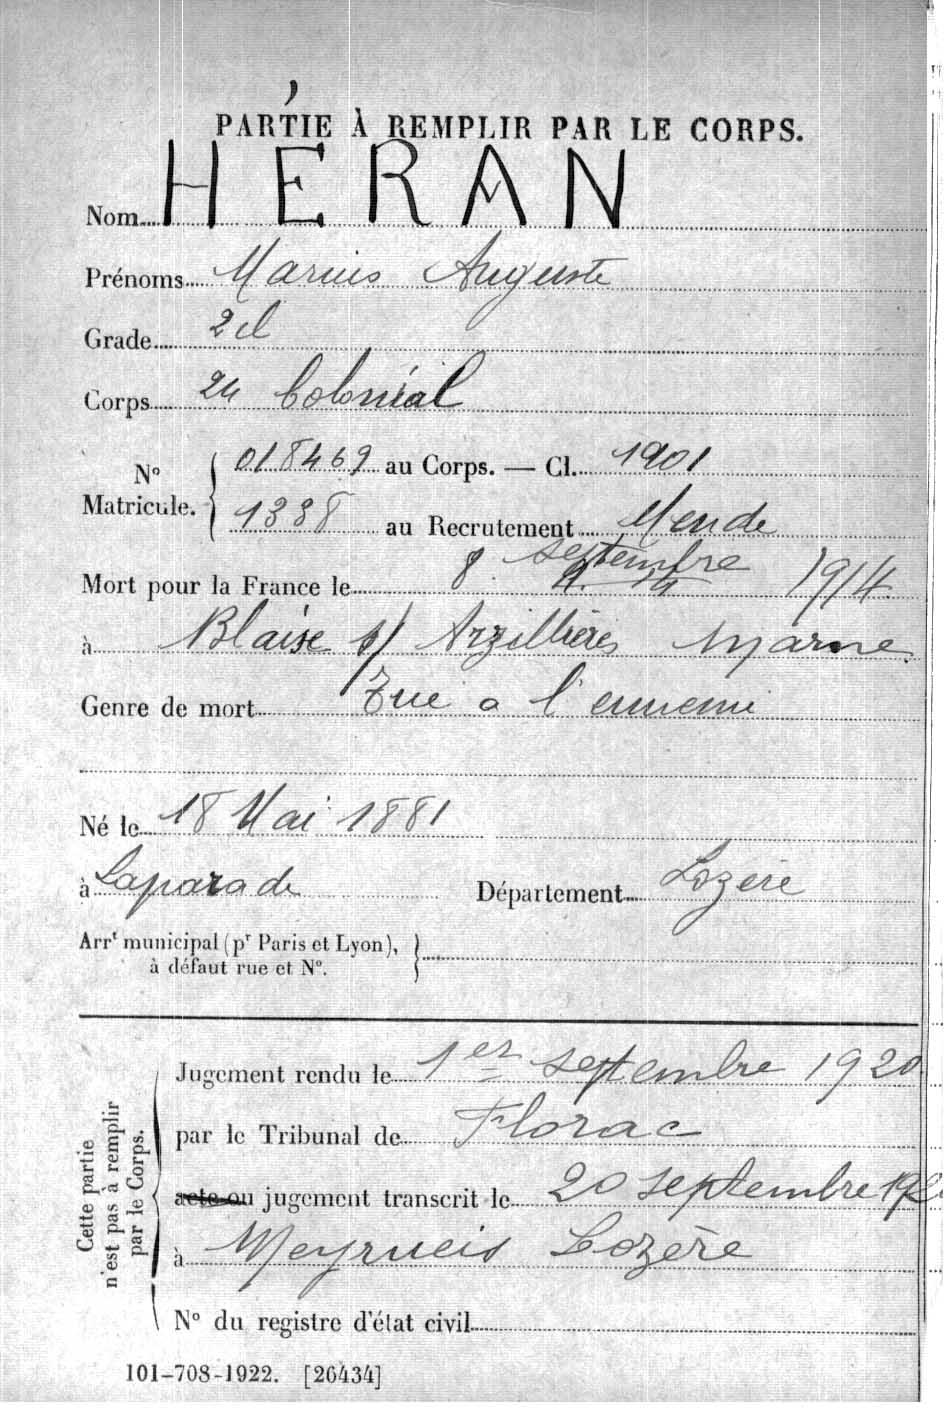 PARTIE À REMPLIR PAR LE CORPS.
Nom HÉRAN
Prénoms Marius Auguste
Grade 2 cl
Corps 24 Colonial
N° Matricule. 018469 au Corps. — Cl. 1901
1338 au Recrutement Mende
Mort pour la France le 8 septembre 1914
à Blaise s/ Arzillières Marne
Genre de mort Tué a l'ennemi
Né le 18 Mai 1881
à Laparade Département Lozère
Arrt municipal (pr Paris et Lyon),
à défaut rue et N°.
Cette partie n'est pas à remplir par le Corps.
Jugement rendu le 1er septembre 1920
par le Tribunal de Florac
acte ou jugement transcrit le 20 septembre 192
à Meyrueis Lozère
N° du registre d'état civil
101-708-1922. [26434]